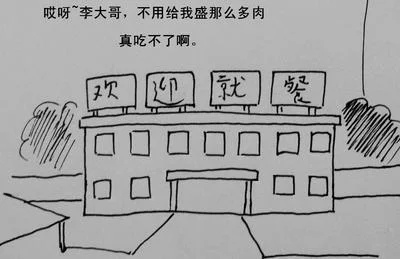 哎呀~李大哥，不用给我盛那么多肉
真吃不了啊。
欢迎就餐